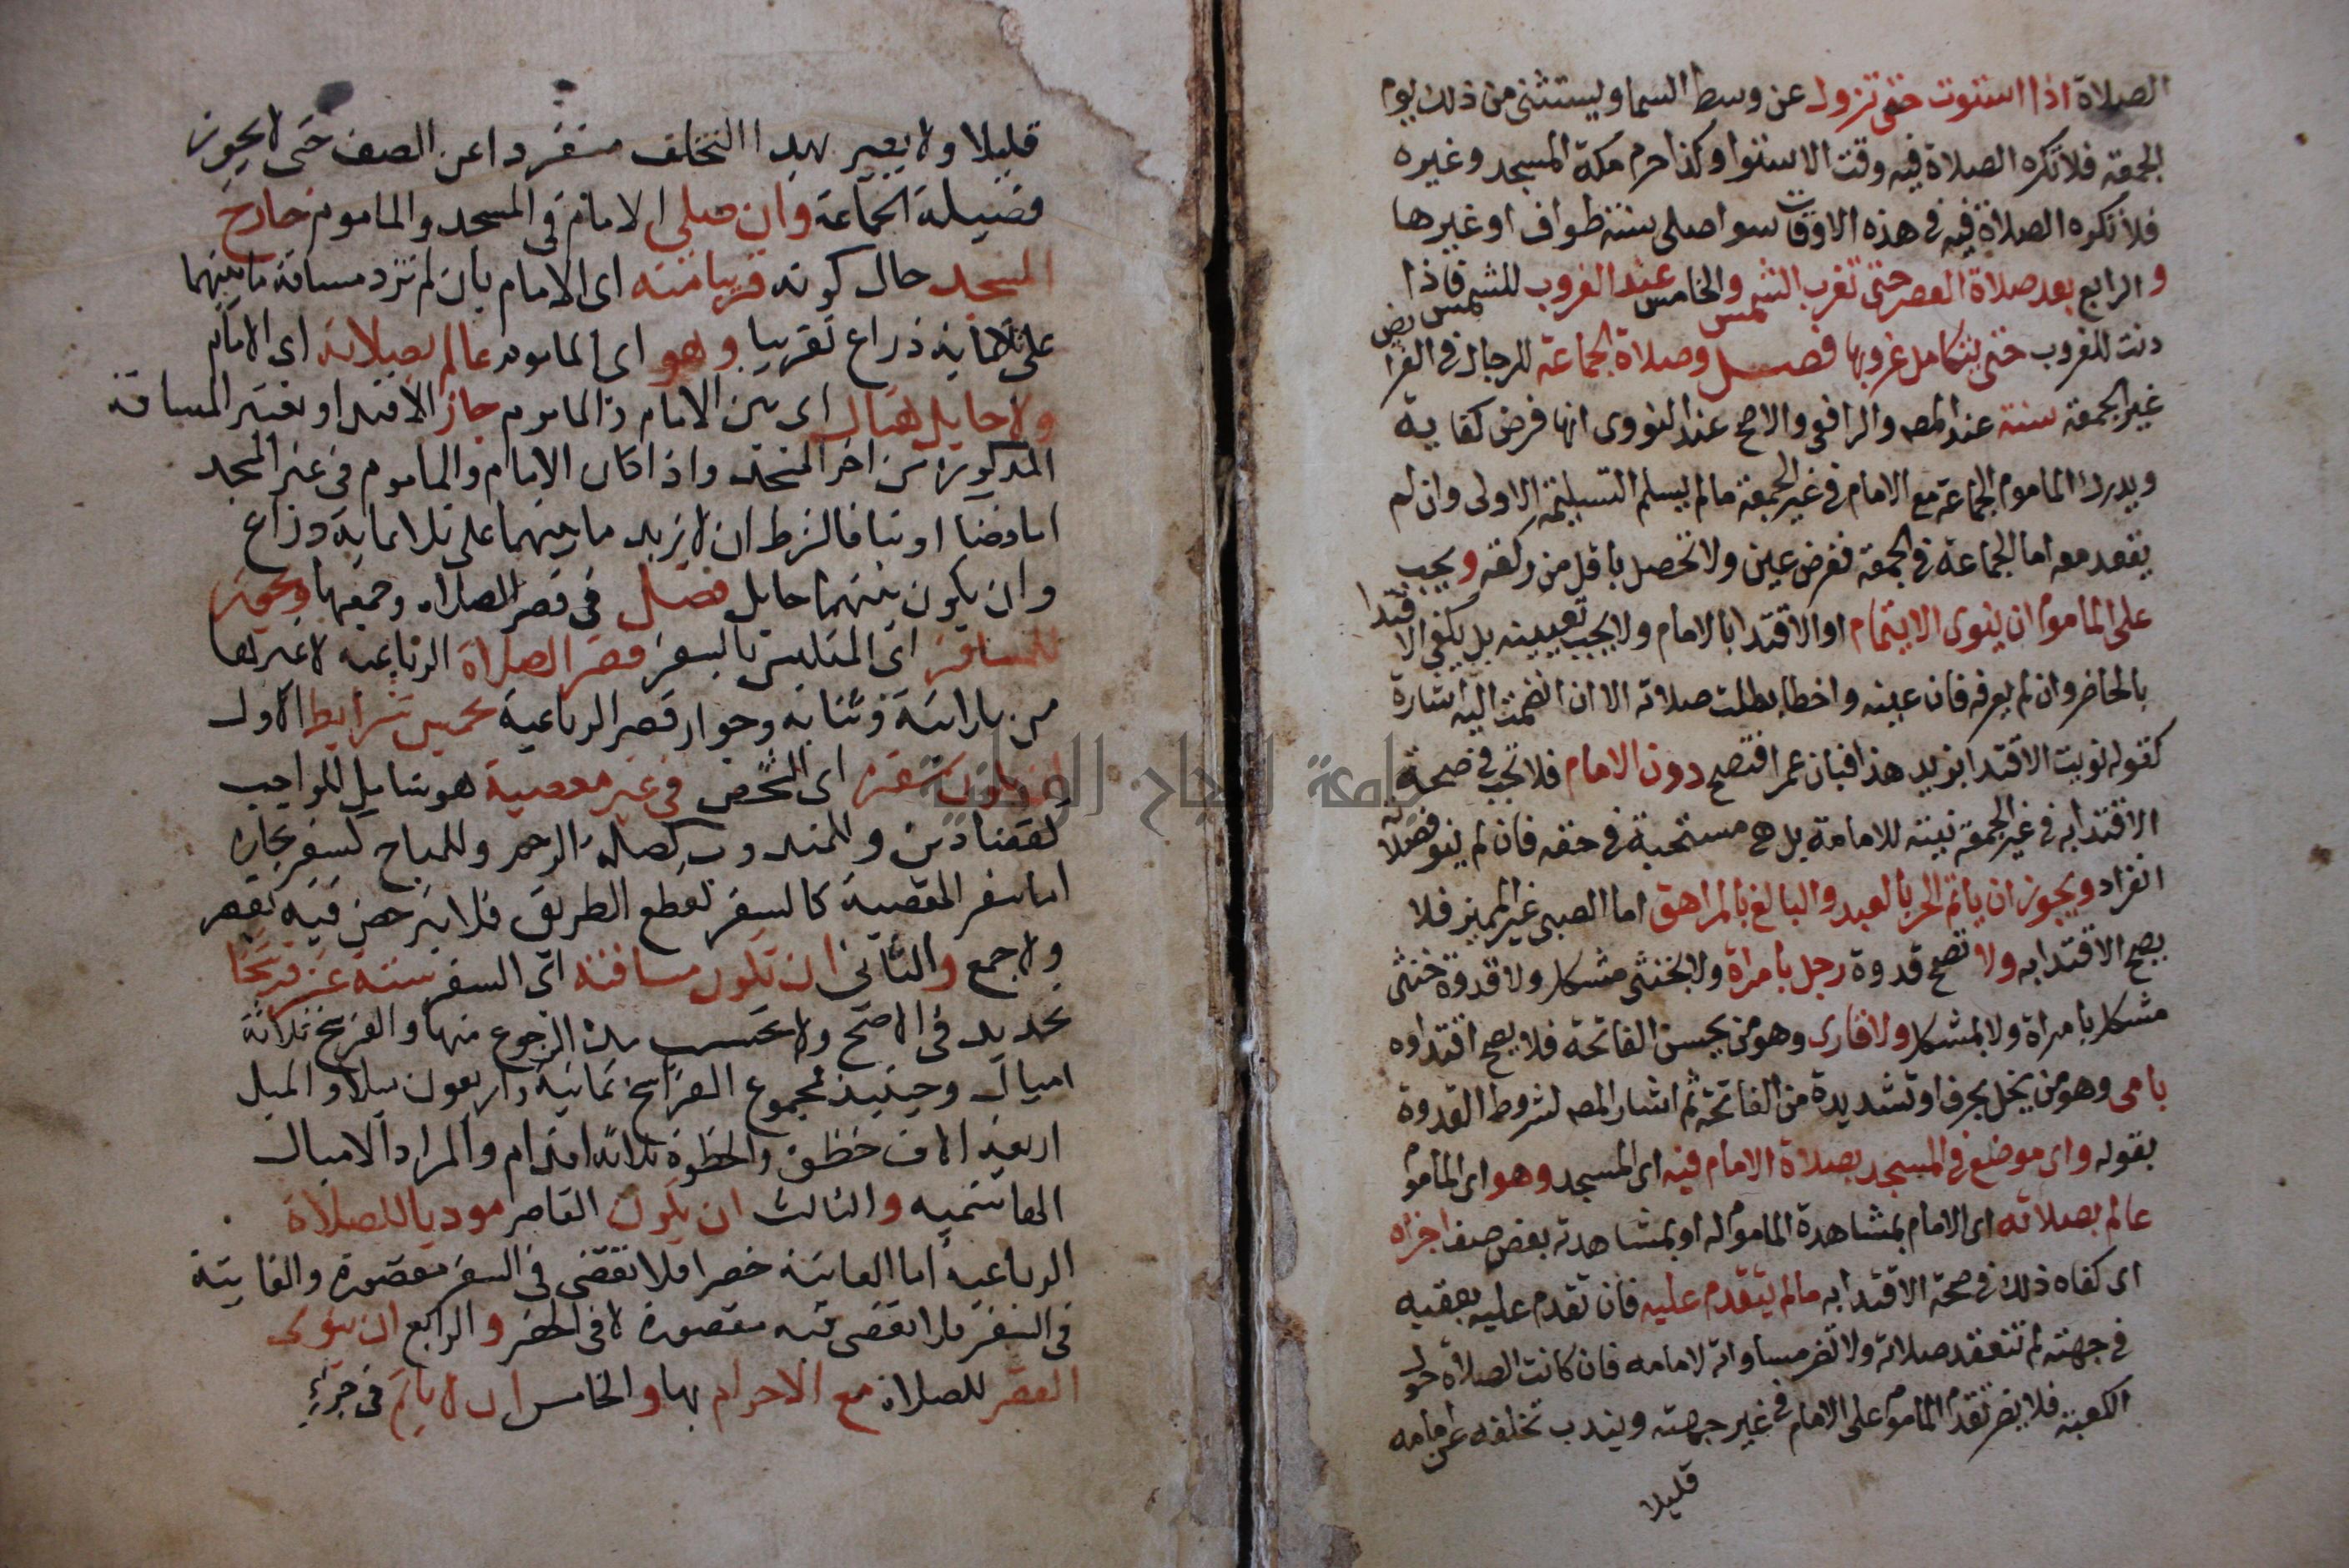 الصلاة اذا استوت حتى تزول عن وسط السما ويستثنى من ذلك يوم
الجمعة فلا تكره الصلاة فيه وقت الاستوا وكذا حرم مكة المسجد وغيره
فلا تكره الصلاة فيه في هذه الاوقات سوا صلى سنة طواف او غيرها
والرابع بعد صلاة العصر حتى تغرب الشمس والخامس عند الغروب للشمس فاذا
دنت للغروب حتى يتكامل غروبها فصل وصلاة الجماعة للرجال في الفرايض
غير الجمعة سنة عند المص والرافعي والاصح عند النووي انها فرض كفاية
ويدرك الماموم الجماعة مع الامام في غير الجمعة مالم يسلم التسليمة الاولى وان لم
يقعد معه اما الجماعة في الجمعة ففرض عين ولا تحصل باقل من ركعة ويجب
على الماموم ان ينوى الايتمام او الاقتدا بالامام ولا يجب تعيينه بل يكفي الاقتدا
بالحاضر وان لم يعرفه فان عينه واخطا بطلت صلاته الا ان انضمت اليه اشارة
كقوله نويت الاقتدا بزيد هذا فبان عمرا فتصح دون الامام فلا تجب في صحة
الاقتدا به في غير الجمعة نية الامامة بل هي مستحبة في حقه فان لم ينو فصلاته
انفراد ويجوز ان ياتم الحر بالعبد والبالغ بالمراهق اما الصبي غير المميز فلا
يصح الاقتدا به ولا تصح قدوة رجل بامراة ولا بخنثى مشكل ولا قدوة خنثى
مشكل بامراة ولا بمشكل ولا قارى وهو من يحسن الفاتحة فلا يصح اقتداوه
بامي وهو من يخل بحرف او تشديدة من الفاتحة ثم اشار المص لشروط القدوة
بقوله واى موضع في المسجد بصلاة الامام فيه اى المسجد وهو اى الماموم
عالم بصلاته اى الامام بمشاهدة الماموم له او بمشاهدته بعض صف اجزاه
اى كفاه ذلك في صحة الاقتدا به مالم يتقدم عليه فان تقدم عليه بعقبه
في جهته لم تنعقد صلاته ولا تضر مساواته لامامه فان كانت الصلاة حول
الكعبة فلا يضر تقدم الماموم على الامام في غير جهته ويندب تخلفه عن امامه
قليلا
قليلا ولا يصير بهذا التخلف منفردا عن الصف حتى لا يحوز
فضيلة الجماعة وان صلى الامام في المسجد والماموم خارج
المسجد حال كونه قريبا منه اى الامام بان لم تزد مسافة ما بينهما
على ثلاثماية ذراع تقريبا وهو اى الماموم عالم بصلاته اى الامام
ولا حايل هناك اى بين الامام والماموم جاز الاقتدا وتعتبر المسافة
المذكورة من اخر المسجد واذا كان الامام والماموم في غير المسجد
اما فضا او بنا فالشرط ان لا يزيد ما بينهما على ثلاثماية ذراع
وان يكون بينهما حايل فصل في قصر الصلاه وجمعها ويجوز
للمسافر اى المتلبس بالسفر قصر الصلاة الرباعية لا غيرها
من ثنائية وثلاثية وجواز قصر الرباعية بخمس شرايط الاول
ان يكون سفره اى الشخص في غير معصية هو شامل للواجب
كقضا دين وللمندوب كصلة الرحم وللمباح كسفر تجارة
اما سفر المعصية كالسفر لقطع الطريق فلا يترخص فيه بقصر
ولا جمع والثاني ان تكون مسافته اى السفر ستة عشر فرسخا
تحديد في الاصح ولا تحسب مدة الرجوع منها والفرسخ ثلاثة
اميال وحينيذ فمجموع الفراسخ ثمانية واربعون ميلا والميل
اربعة الاف خطوة والخطوة ثلاثة اقدام والمراد الاميال
الهاشمية والثالث ان يكون القاصر موديا للصلاة
الرباعية اما الفايتة حضرا فلا تقضى في السفر مقصورة والفايتة
في السفر تقضى فيه مقصورة لا في الحضر والرابع ان ينوى
القصر للصلاة مع الاحرام بها والخامس ان لا ياتم في جزء
جامعة النجاح الوطنية